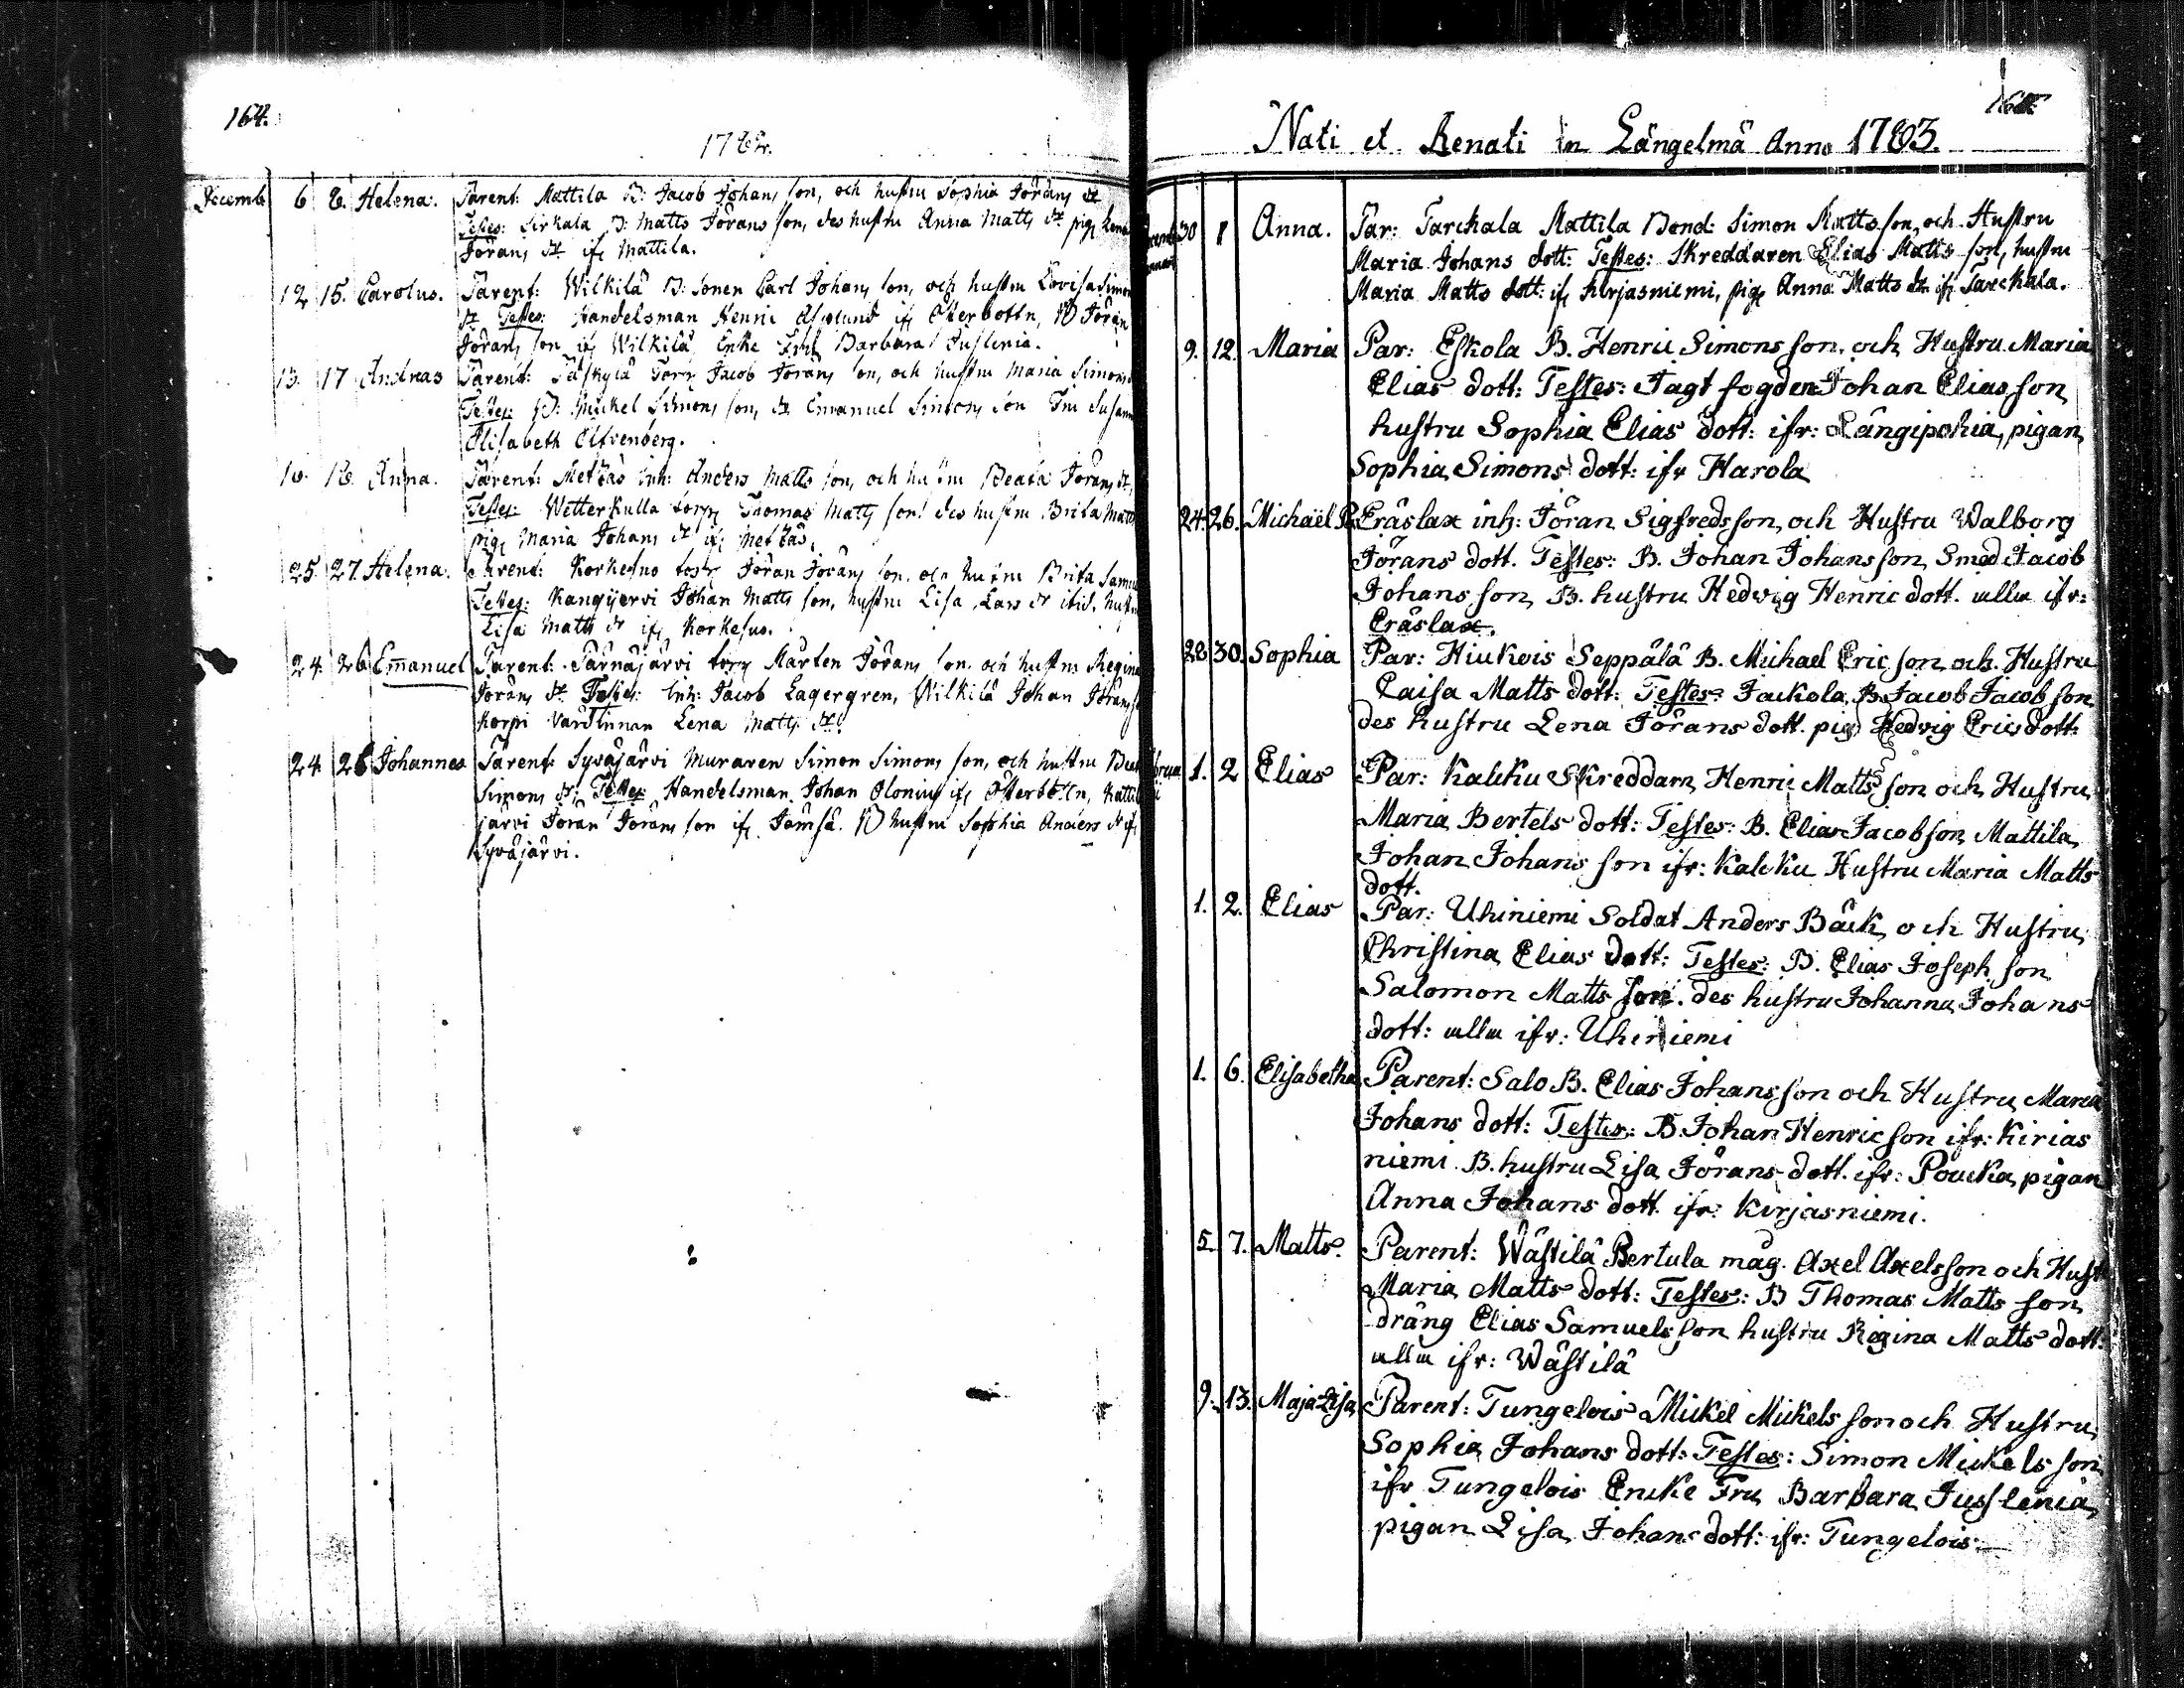 164.
1782.
Decemb 6 8. Helena. Parent: Mattila B: Jacob Johans son, och hustru Sophia Jörans dr
Testes: Sirkala B: Matts Jörans son, des hustru Anna Matts dr pig Lena
Jörans dr ifr Mattila.
12 15. Carolus. Parent: Wilkilä B: sonen Carl Johans son, och hustru Lovisa Simons
dr Testes: Handelsman Henric Asplund ifr Österbottn, B Jöran
Jörans son ifr Wilkilä Enke Fru Barbara Juslenia.
13. 17 Andreas Parent: torp Jacob Jörans son, och hustru Maria Simons
Testes: B: Mickel Simons son, dr Emanuel Simons son Fru Susanna
Elisabeth Elfvenberg.
16. 18. Anna. Parent: Metzäs inh: Anders Matts son, och hustru Beata Jörans dr,
Testes: Wetterkulla torp Thomas Matts son, des hustru Brita Matts
pig Maria Johans dr ifr Metzäs.
25. 27. Helena. Parent: Korkesuo torp Jöran Jörans son, och hustru Brita Samu
Testes: Kangijervi Johan Matts son, hustru Lisa Lars dr ibid. hustru
Lisa Matts dr ifr Korkesuo.
24. 26 Emanuel Parent: Särnäjärvi torp Mårten Jörans son och hustru Regina
Jörans dr Testes: Inh: Jacob Lagergren, Wilkilä Johan Jörans
Korpi värdinnan Lena Matts dr.
24. 26 Johannes Parent: Syväjärvi Muraren Simon Simons son, och hustru Beat
Simons dr, Testes: Handelsman Johan Olonius ifr Österbottn, Kattil
järvi Jöran Jörans son ifr Jämsä. B hustru Sophia Anders dr ifr
Syväjärvi.
165.
Nati et Renati in Längelmä Anno 1783.
30 1 Anna. Par: Tarckala Mattila Bond: Simon Matts son, och Hustru
Maria Johans dott: Testes: Skreddaren Elias Matts son, hustru
Maria Matts dott: ifr Kirjasniemi, pig Anna Matts dr ifr Tarckala.
9. 12. Maria Par: Eskola B. Henric Simons son, och Hustru Maria
Elias dott: Testes: Jagt fogden Johan Elias son
hustru Sophia Elias dott: ifr: Längipohia, pigan
Sophia Simons dott: ifr Harola
24. 26. Michaël Pa: Eräslax inh: Jöran Sigfreds son, och Hustru Walborg
Jörans dott. Testes: B. Johan Johans son, Smed Jacob
Johans son, B. hustru Hedvig Henric dott. alla ifr:
Eräslax.
28 30. Sophia Par: Hiukois Seppälä B. Michael Eric son och Hustru
Caisa Matts dott: Testes: Jackola B. Jacob Jacob son
des hustru Lena Jörans dott. pig Hedvig Erics dott:
1. 2 Elias Par: Kalcku Skreddarn Henric Matts son och Hustru
Maria Bertels dott: Testes: B. Elias Jacob son, Mattila
Johan Johans son ifr: Kalcku Hustru Maria Matts
dott.
1. 2. Elias Par: Uhiniemi Soldat Anders Bäck och Hustru
Christina Elias dott: Testes: B. Elias Joseph son
Salomon Matts son. des hustru Johanna Johans
dott: alla ifr: Uhiniemi
1. 6. Elisabetha Parent: Salo B. Elias Johans son och Hustru Maria
Johans dott: Testes: B. Johan Henric son ifr: Kirias
niemi B. hustru Lisa Jörans dott. ifr: Poucka, pigan
Anna Johans dott. ifr: Kirjasniemi.
5. 7. Matts. Parent: Wästilä Bertula måg. Axel Axels son och Hust
Maria Matts dott: Testes: B Thomas Matts son,
dräng Elias Samuels son hustru Regina Matts dott:
alla ifr: Wästilä
9. 13. Maja Lisa Parent: Tungelois Mickel Mickels son och Hustru
Sophia Johans dott: Testes: Simon Mickels son
ifr Tungelois Encke Fru Barbara Juslenia,
pigan Lisa Johans dott: ifr: Tungelois